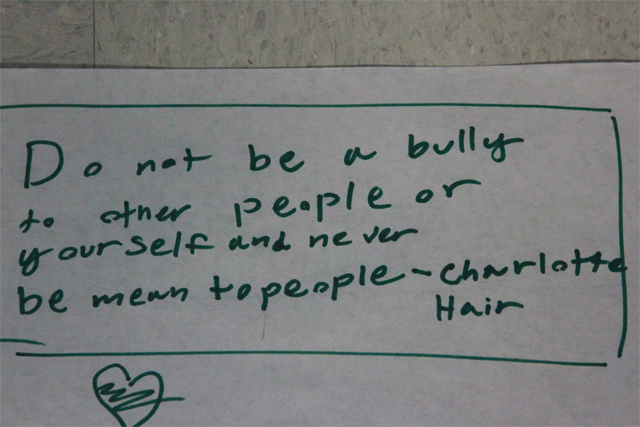 Do not be a bully
to other people or
yourself and never
be mean to people - Charlotte
Hair